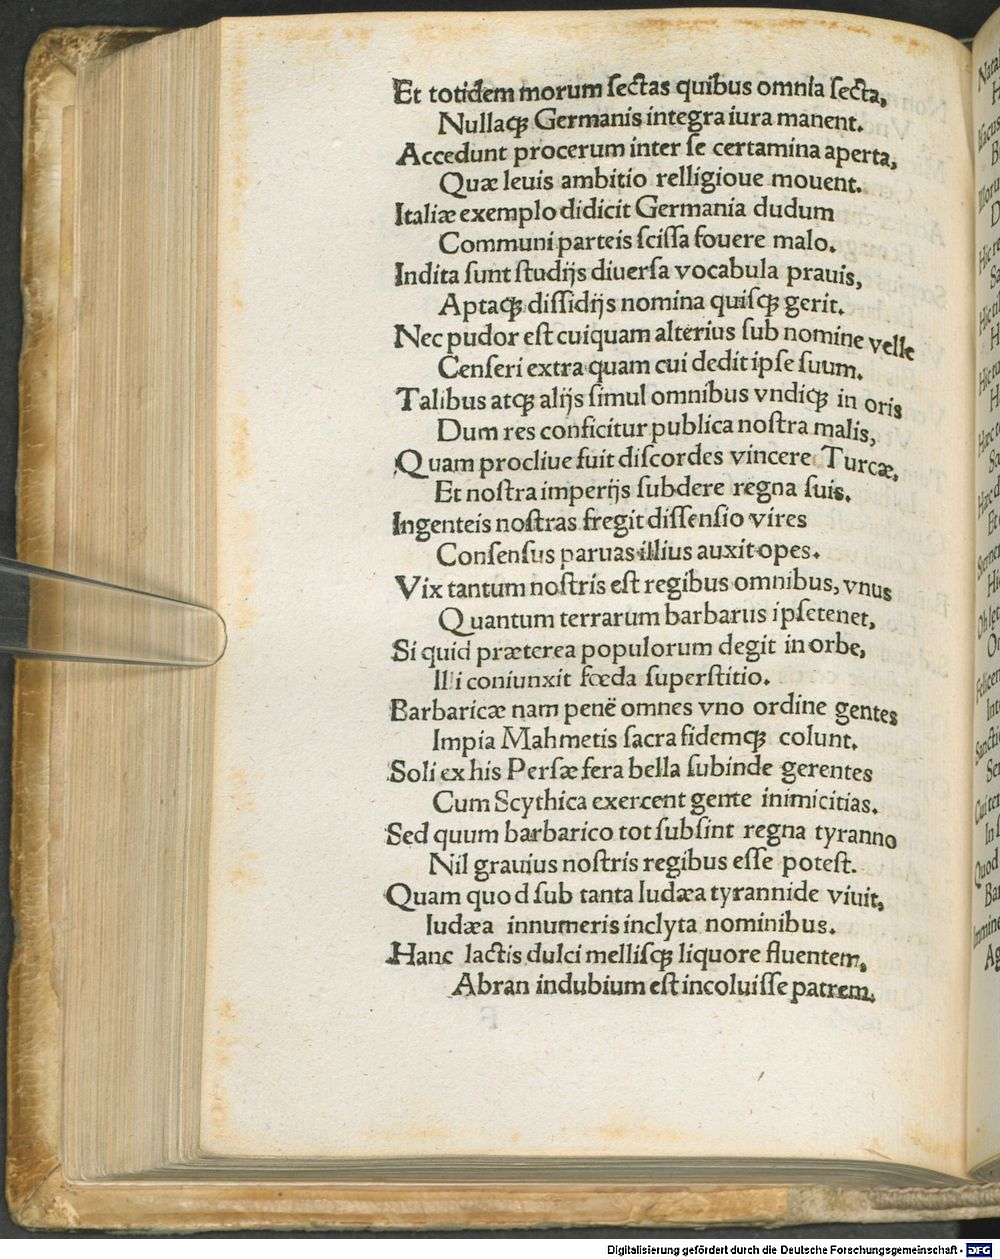 Et totidem morum ſectas quibus omnia ſecta,
Nullaqꝫ Germanis integra iura manent.
Accedunt procerum inter ſe certamina aperta,
Quæ leuis ambitio relligioue mouent.
Italiæ exemplo didicit Germania dudum
Communi parteis ſciſſa fouere malo.
Indita ſunt ſtudijs diuerſa vocabula prauis,
Aptaqꝫ diſſidijs nomina quiſqꝫ gerit.
Nec pudor eſt cuiquam alterius ſub nomine velle
Cenſeri extra quam cui dedit ipſe ſuum.
Talibus atqꝫ alijs ſimul omnibus vndiqꝫ in oris
Dum res conficitur publica noſtra malis,
Quam procliue fuit diſcordes vincere Turcæ,
Et noſtra imperijs ſubdere regna ſuis.
Ingenteis noſtras fregit diſſenſio vires
Conſenſus paruas illius auxit opes.
Vix tantum noſtris eſt regibus omnibus, vnus
Quantum terrarum barbarus ipſe tenet,
Si quid præterea populorum degit in orbe,
Illi coniunxit fœda ſuperſtitio.
Barbaricæ nam penë omnes vno ordine gentes
Impia Mahmetis ſacra fidemqꝫ colunt.
Soli ex his Perſæ fera bella ſubinde gerentes
Cum Scythica exercent gente inimicitias.
Sed quum barbarico tot ſubſint regna tyranno
Nil grauius noſtris regibus eſſe poteſt.
Quam quod ſub tanta Iudæa tyrannide viuit,
Iudæa innumeris inclyta nominibus.
Hanc lactis dulci melliſqꝫ liquore fluentem,
Abran indubium eſt incoluiſſe patrem.
Digitalisierung gefördert durch die Deutsche Forschungsgemeinschaft - DFG